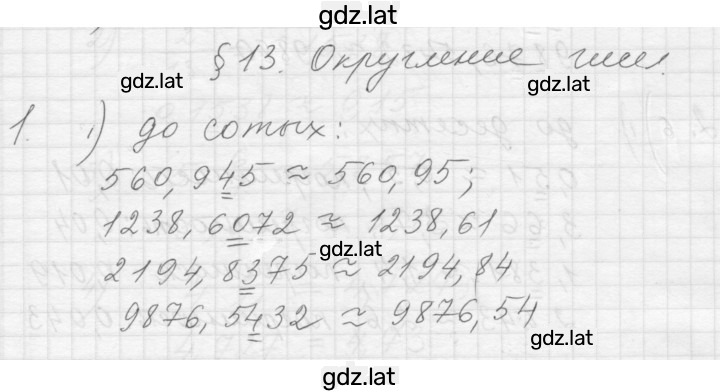 gdz.lat
§ 13. Округление чисел.
gdz.lat gdz.lat
1. 1) до сотых:
560,945 ≈ 560,95;
1238,6072 ≈ 1238,61
gdz.lat
2194,8375 ≈ 2194,84
9876,5432 ≈ 9876,54
gdz.lat
gdz.lat